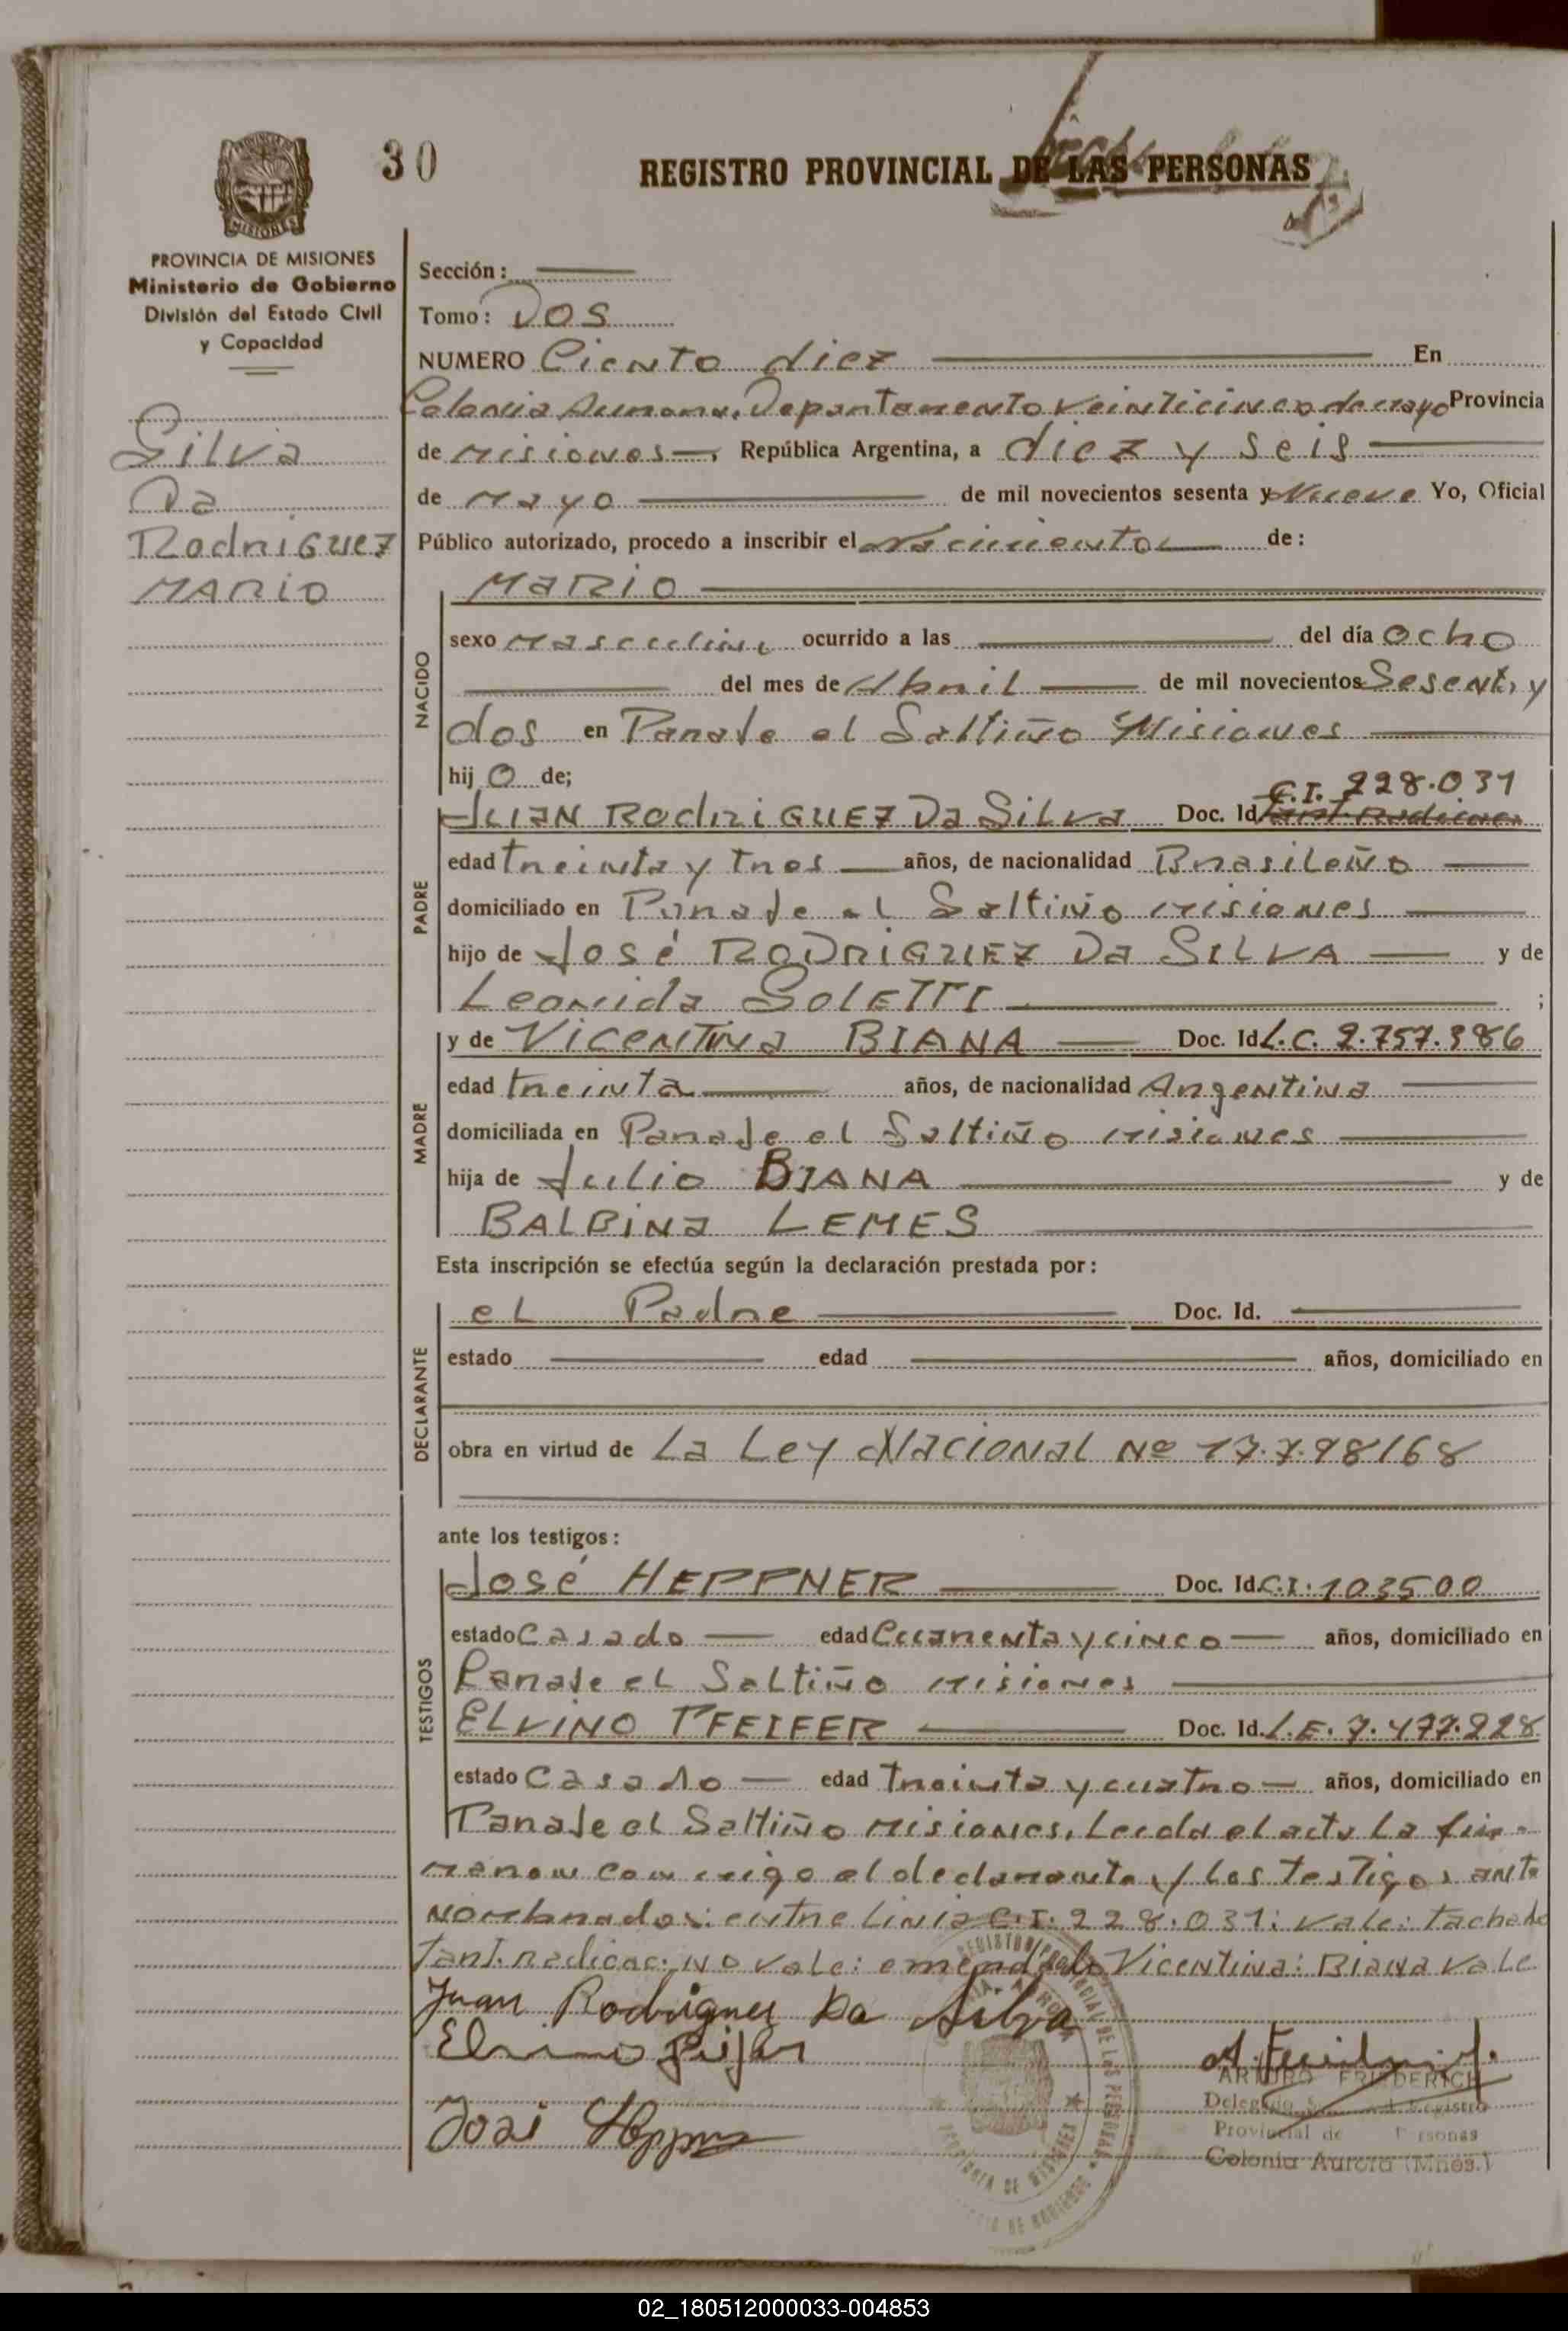 30
REGISTRO PROVINCIAL DE LAS PERSONAS
MISIONES
PROVINCIA DE MISIONES
Ministerio de Gobierno
División del Estado Civil
y Capacidad
Silva
Da
Rodriguez
MARIO
Sección:
Tomo: DOS
NUMERO Ciento diez En
Colonia Aurora, Departamento Veinticinco de mayo Provincia
de Misiones, República Argentina, a diez y seis
de Mayo de mil novecientos sesenta y Nueve Yo, Oficial
Público autorizado, procedo a inscribir el Nacimiento de:
NACIDO
MARIO
sexo Masculino ocurrido a las del día ocho
del mes de Abril de mil novecientos Sesenta y
dos en Paraje el Saltiño Misiones
hijo de;
PADRE
C.I. 228.031
JUAN RodriGUEZ Da Silva Doc. Id
edad treinta y tres años, de nacionalidad Brasileño
domiciliado en Paraje el Saltiño Misiones
hijo de José RODriGUEZ Da SILVA y de
Leonida SOLETTI ;
MADRE
y de VicenTina BIANA Doc. Id L.C. 2.757.386
edad treinta años, de nacionalidad Argentina
domiciliada en Paraje el Saltiño Misiones
hija de Julio BIANA y de
BALBINA LEMES
Esta inscripción se efectúa según la declaración prestada por:
DECLARANTE
el Padre Doc. Id.
estado edad años, domiciliado en
obra en virtud de La Ley Nacional Nº 17.798/68
ante los testigos:
TESTIGOS
José HEPPNER Doc. Id. C.I. 103500
estado Casado edad Cuarenta y cinco años, domiciliado en
Paraje el Saltiño Misiones
ELVINO PFEIFER Doc. Id. L.E. 7.477.228
estado Casado edad Treinta y cuatro años, domiciliado en
Paraje el Saltiño Misiones. Leida el acta La fir-
maron conmigo el declarante y los testigos ante
nombrados: entre linia C.I. 228.031: vale: tachado
no vale: emendado Vicentina: Biana vale
Juan Rodriguez Da Silva
Elvino Pfeifer
José Heppner
ARTURO FRIEDERICH
Provincial de Personas
Colonia Aurora (Mnes.)
02_180512000033-004853